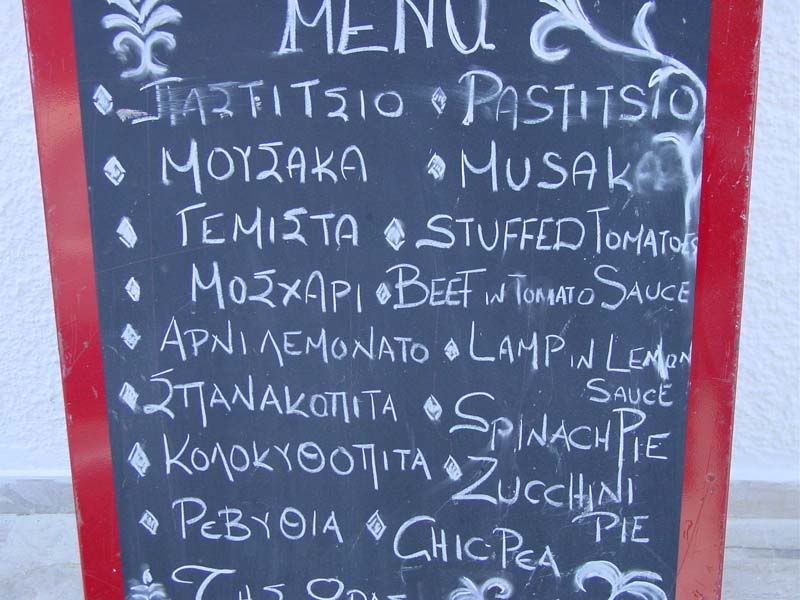 MENU
ΠΑΣΤΙΤΣΙΟ PASTITSIO
ΜΟΥΣΑΚΑ MUSAKA
ΓΕΜΙΣΤΑ STUFFED TOMATOES
ΜΟΣΧΑΡΙ BEEF IN TOMATO SAUCE
ΑΡΝΙ ΛΕΜΟΝΑΤΟ LAMP IN LEMON
SAUCE
ΣΠΑΝΑΚΟΠΙΤΑ SPINACH PIE
ΚΟΛΟΚΥΘΟΠΙΤΑ ZUCCHINI
PIE
ΡΕΒΥΘΙΑ CHIC PEA
ΤΗΣ ΩΡΑΣ